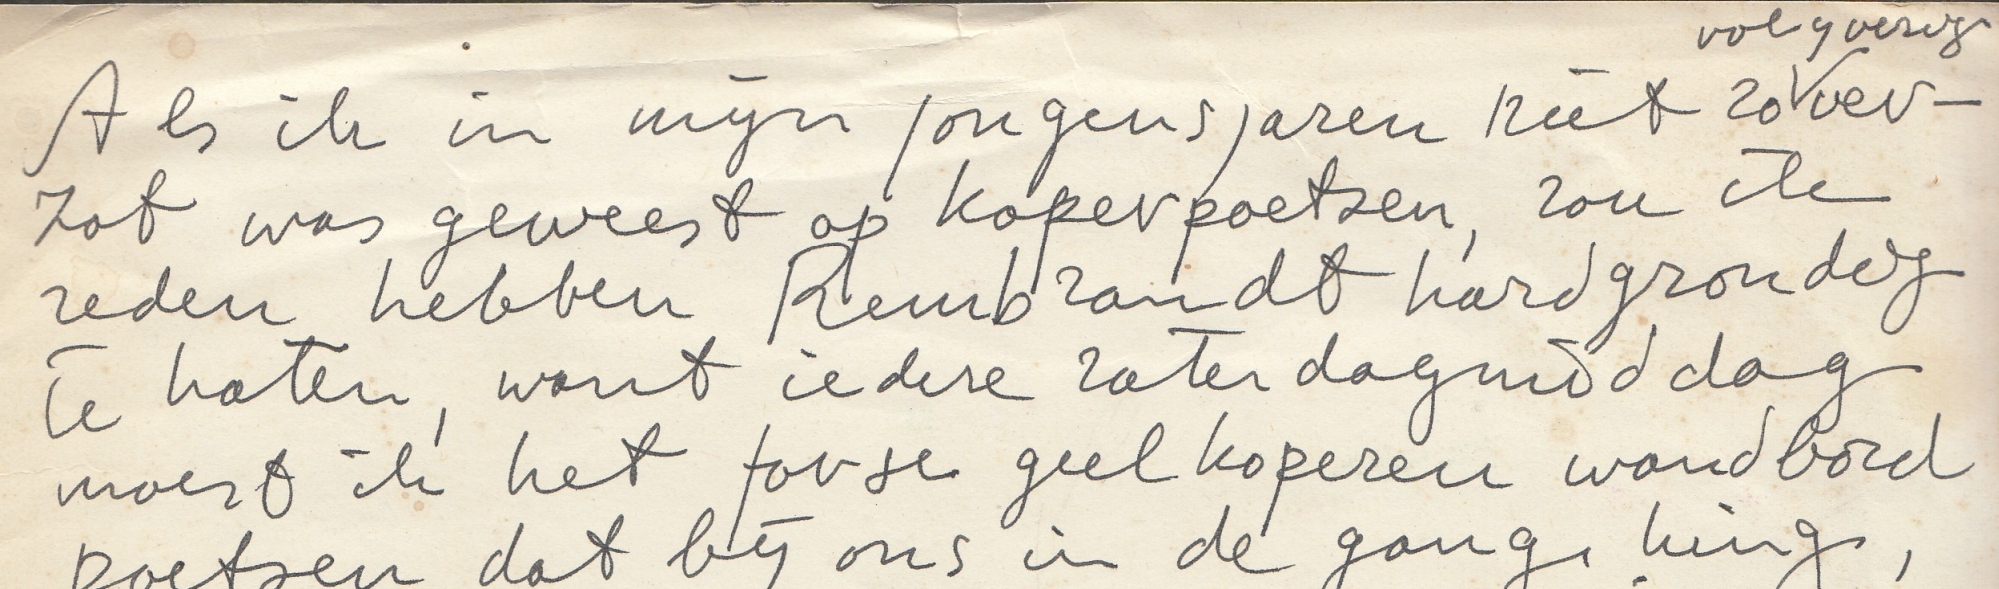 volijverig
Als ik in mijn jongensjaren niet zo ver-
zot was geweest op koperpoetsen, zou ik
reden hebben Rembrandt hardgrondig
te haten, want iedere zaterdagmiddag
moest ik het forse geelkoperen wandbord
poetsen dat bij ons in de gang hing,